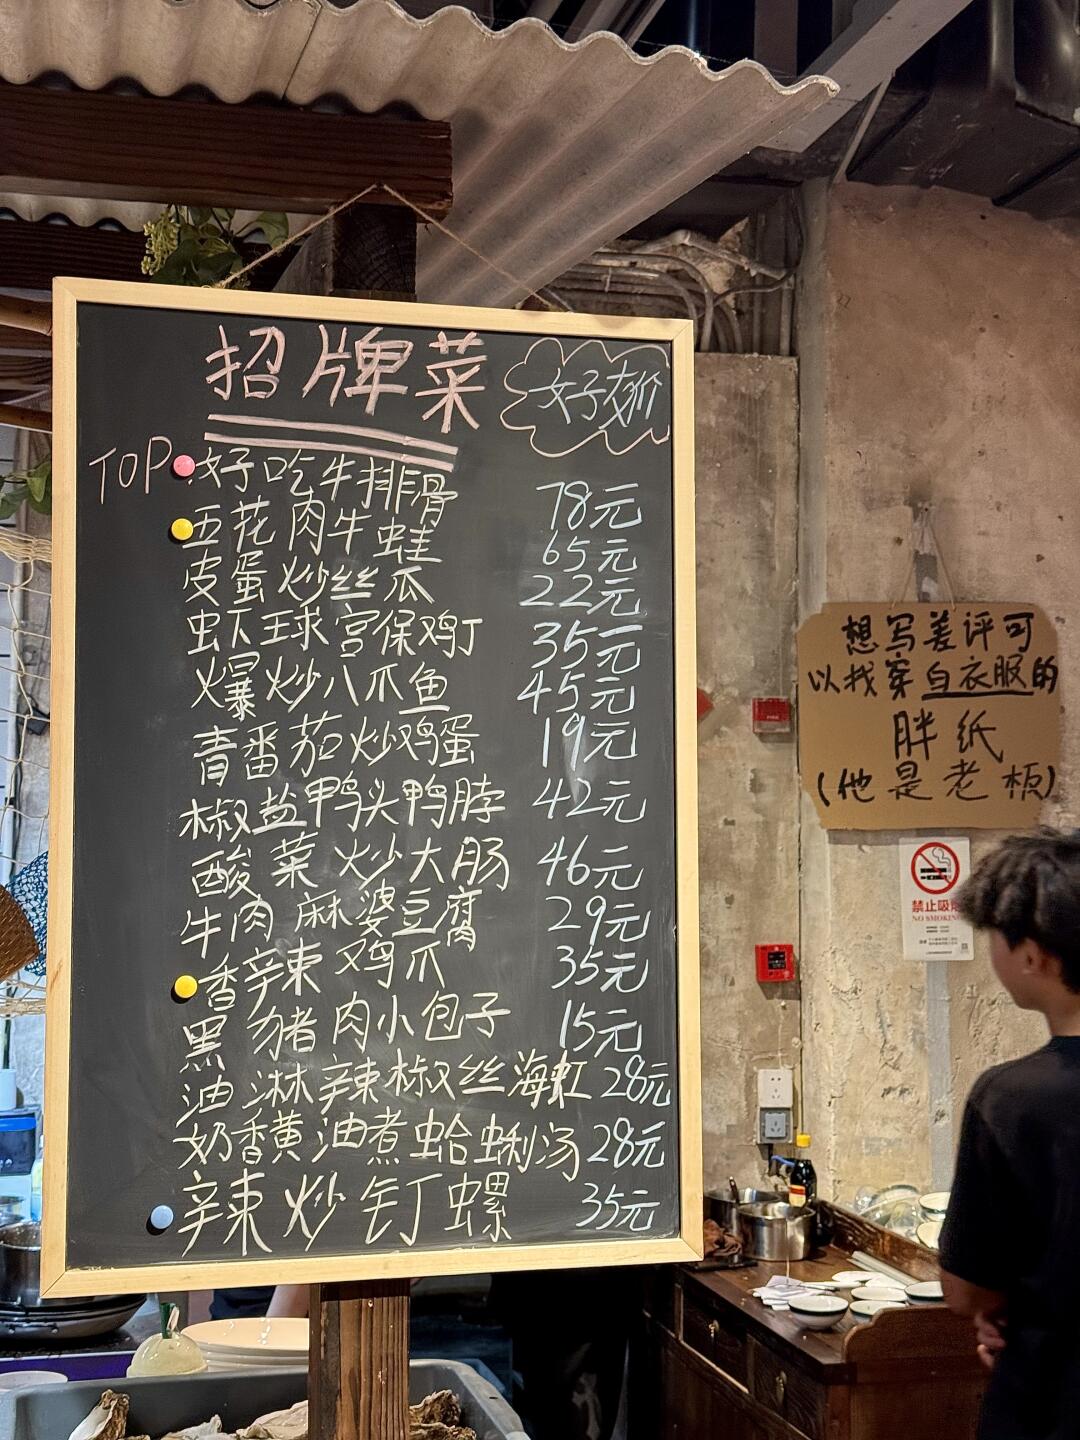 招牌菜
好孑刻价
TOP 好吃牛排骨 78元
五花肉牛蛙 65元
皮蛋炒丝瓜 22元
虾球宫保鸡丁 35元
爆炒八爪鱼 45元
青番茄炒鸡蛋 19元
椒盐鸭头鸭脖 42元
酸菜炒大肠 46元
牛肉麻婆豆腐 29元
香辣鸡爪 35元
黑猪肉小包子 15元
油淋辣椒丝海虹 28元
奶香黄油煮蛤蜊汤 28元
辣炒钉螺 35元
想写差评可
以找穿白衣服的
胖纸
(他是老板)
禁止吸烟
NO SMOKING